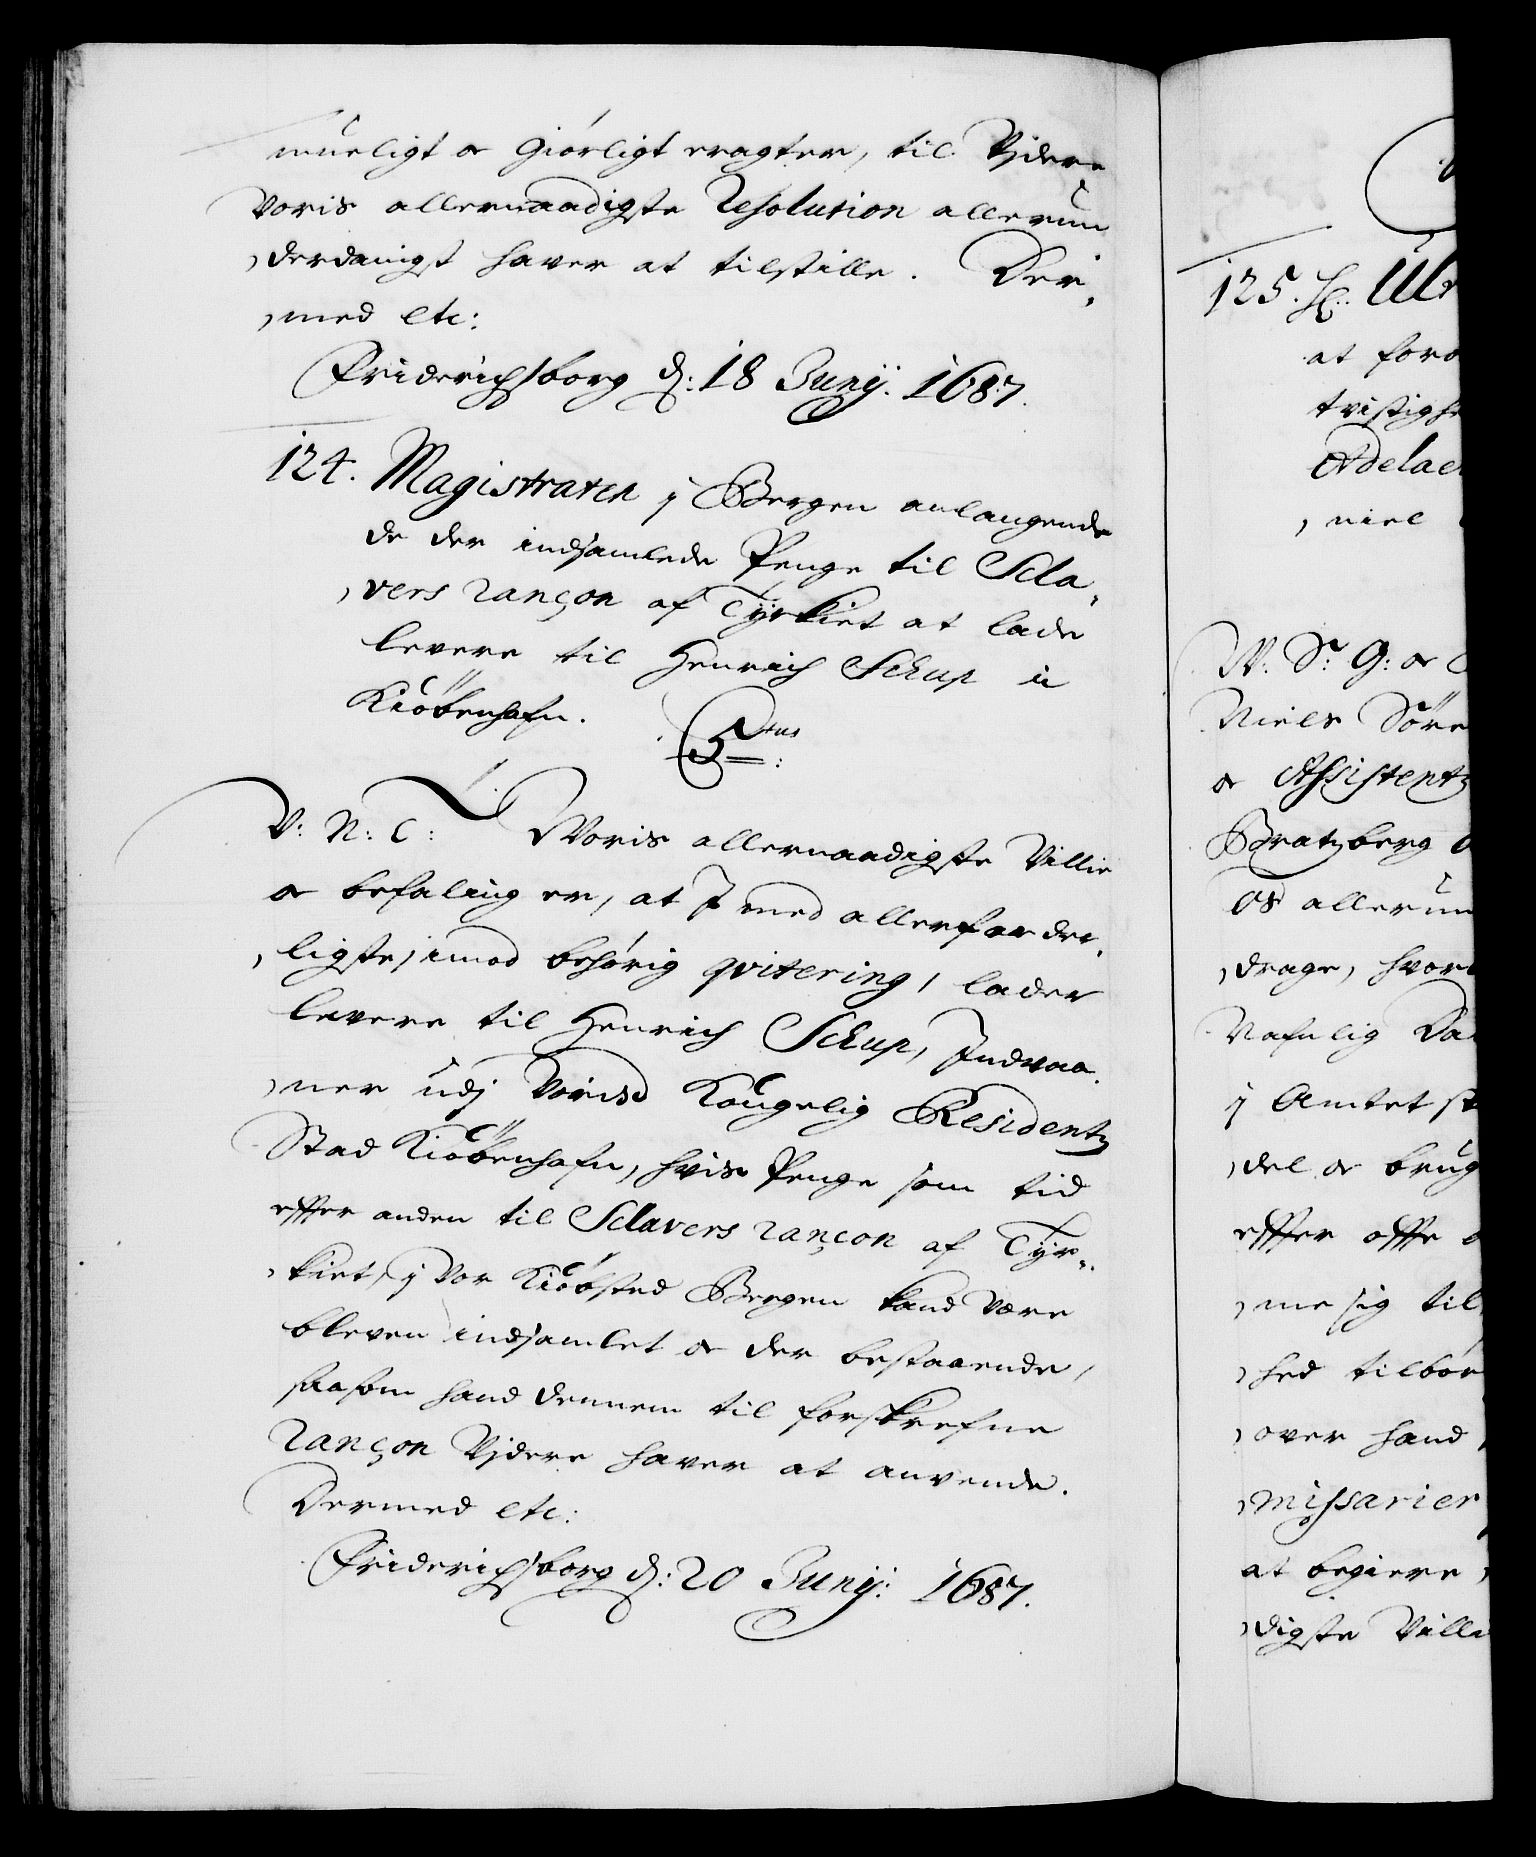 mueligt oc giørligt eragter, til Vjdere
Voris allernaadigste Resolution allerun
derdanigst haver at tilstille. Der,
,med etc:
Friderichsborg d: 18 Junij: 1687.
124. Magistraten j Bergen anlangende
de der indsamlede Penge til Scla,
,vers rançon af Tyrkiet at lade
levere til Henrich Schup i
Kiöbenhafn. C 5tus
V: N: C: Woris allernaadigste Villie
oc befaling er, at I med allerforder,
,ligste, imod behørig qvitering, lader
levere til Henrich Schup, Indvaa,
,ner udj Vorisd Kongelig Residentz
Stad Kiöbenhafn, hvis Penge som tid
effter anden til Sclavers rançon af Tyr,
,kiet, j Vor Kiöbsted Bergen kand være
bleven indsamlet oc der bestaaende,
saasom hand dennem til forskrefne
rançon Vjdere haver at anvende.
Dermed etc:
Friderichsborg d: 20 Junij: 1687.
125. H: Ulr
at foro
tvistighe
Adelaer
,niel
W: Sr: G: oc
Niels Söre
oc Assistentz
Bratzberg
Os allerun
,drage, hvor
Nafnlig Da
j Amtet st
,del oc brug
effter offte
,me sig til
,hed tilbør
,over hand
,missarier
at begiere,
,digste Villi